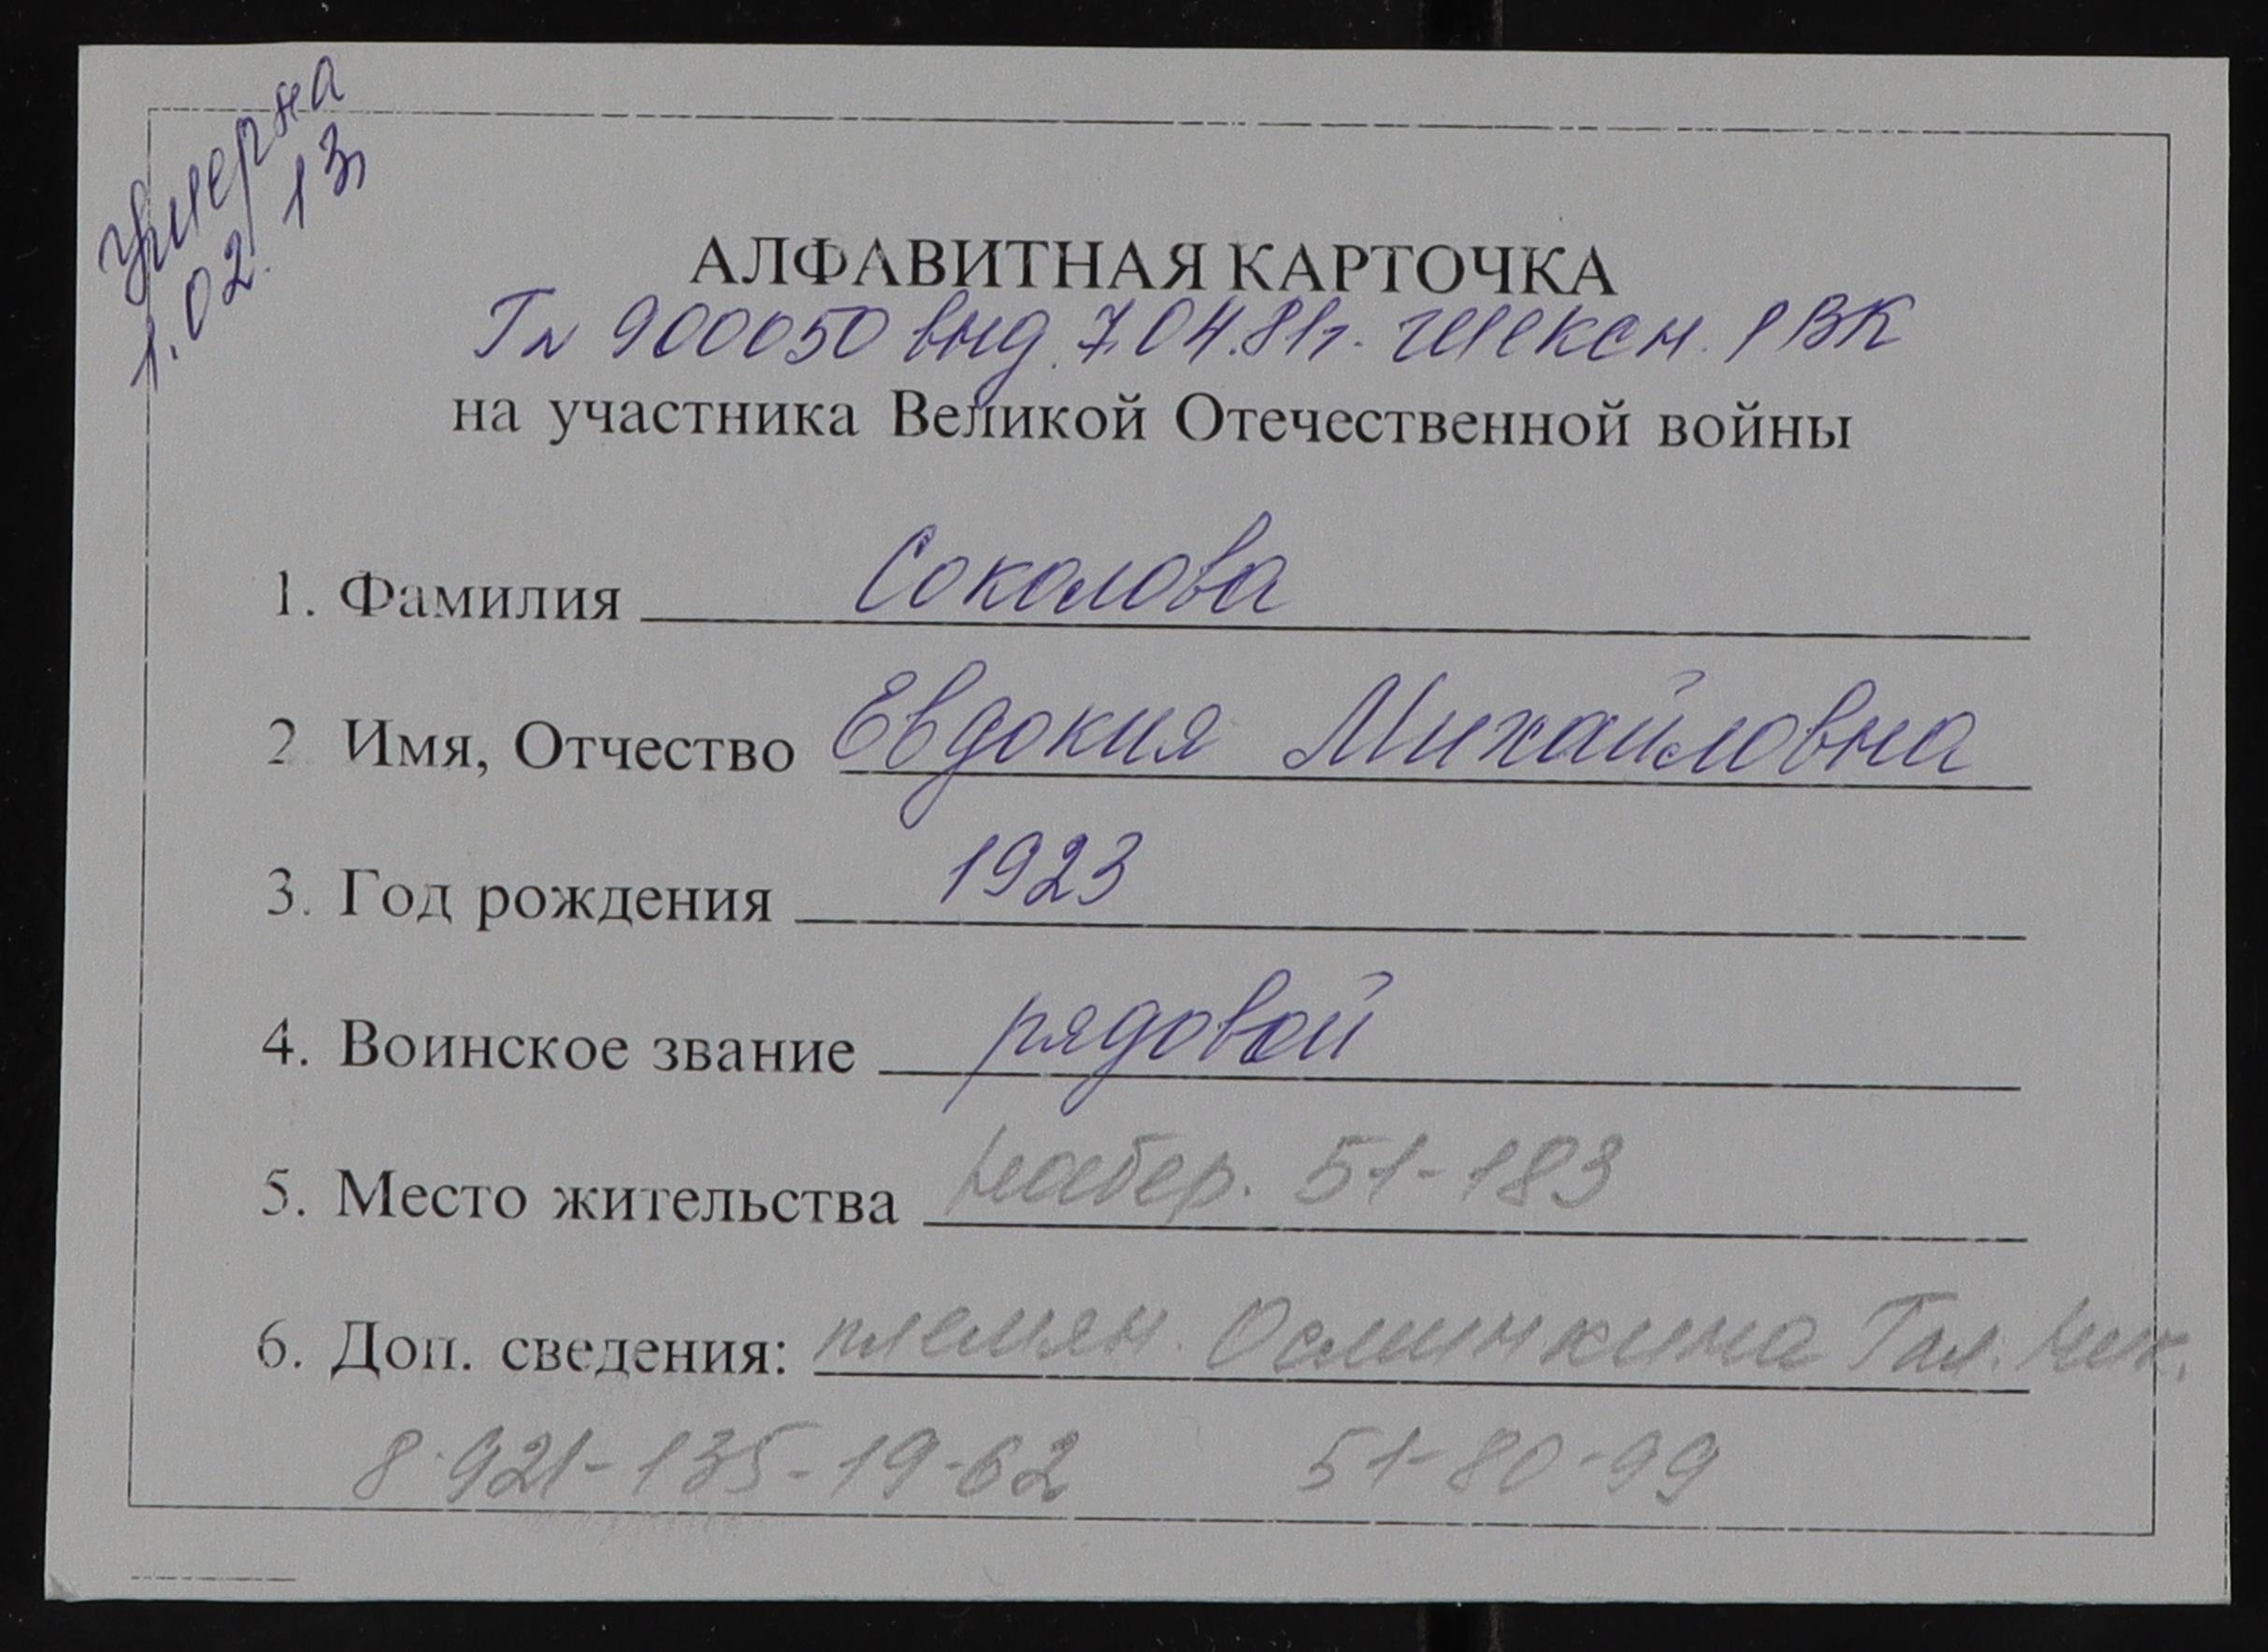 умерла
1.02.13
АЛФАВИТНАЯ КАРТОЧКА
Гл 900050 выд. 7.04.81г. Шексн. РВК
на участника Великой Отечественной войны
1. Фамилия Соколова
2 Имя, Отчество Евдокия Михайловна
3. Год рождения 1923
4. Воинское звание рядовой
5. Место жительства набер. 51-183
6. Доп. сведения: племян. Осминкина Гал. Ник.
8-921-135-19-62 51-80-99